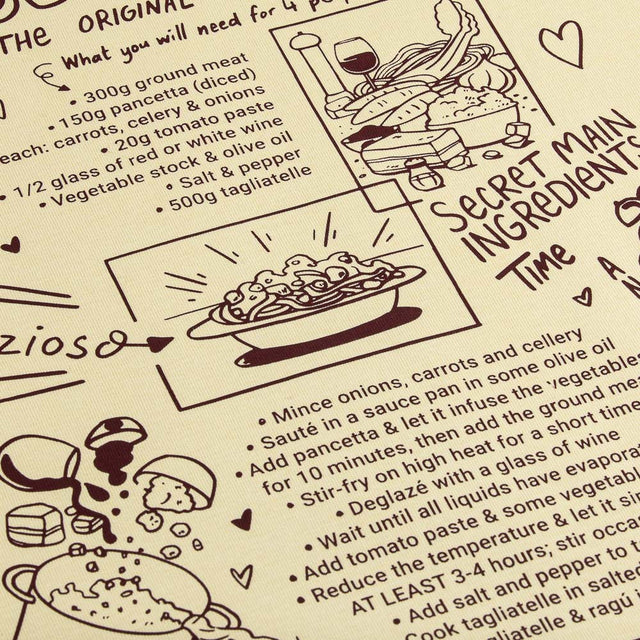 THE ORIGINAL
What you will need for 4
• 300g ground meat
• 150g pancetta (diced)
each: carrots, celery & onions
• 20g tomato paste
• 1/2 glass of red or white wine
• Vegetable stock & olive oil
• Salt & pepper
• 500g tagliatelle
SECRET MAIN
INGREDIENTS
TIME
A
zioso
• Mince onions, carrots and cellery
• Sauté in a sauce pan in some olive oil
• Add pancetta & let it infuse the vegetables
for 10 minutes, then add the ground
• Stir-fry on high heat for a short time
• Deglazé with a glass of wine
• Wait until all liquids have
• Add tomato paste & some
• Reduce the temperature & let it
AT LEAST 3-4 hours; stir
• Add salt and pepper to
Cook tagliatelle in salted
& ragú